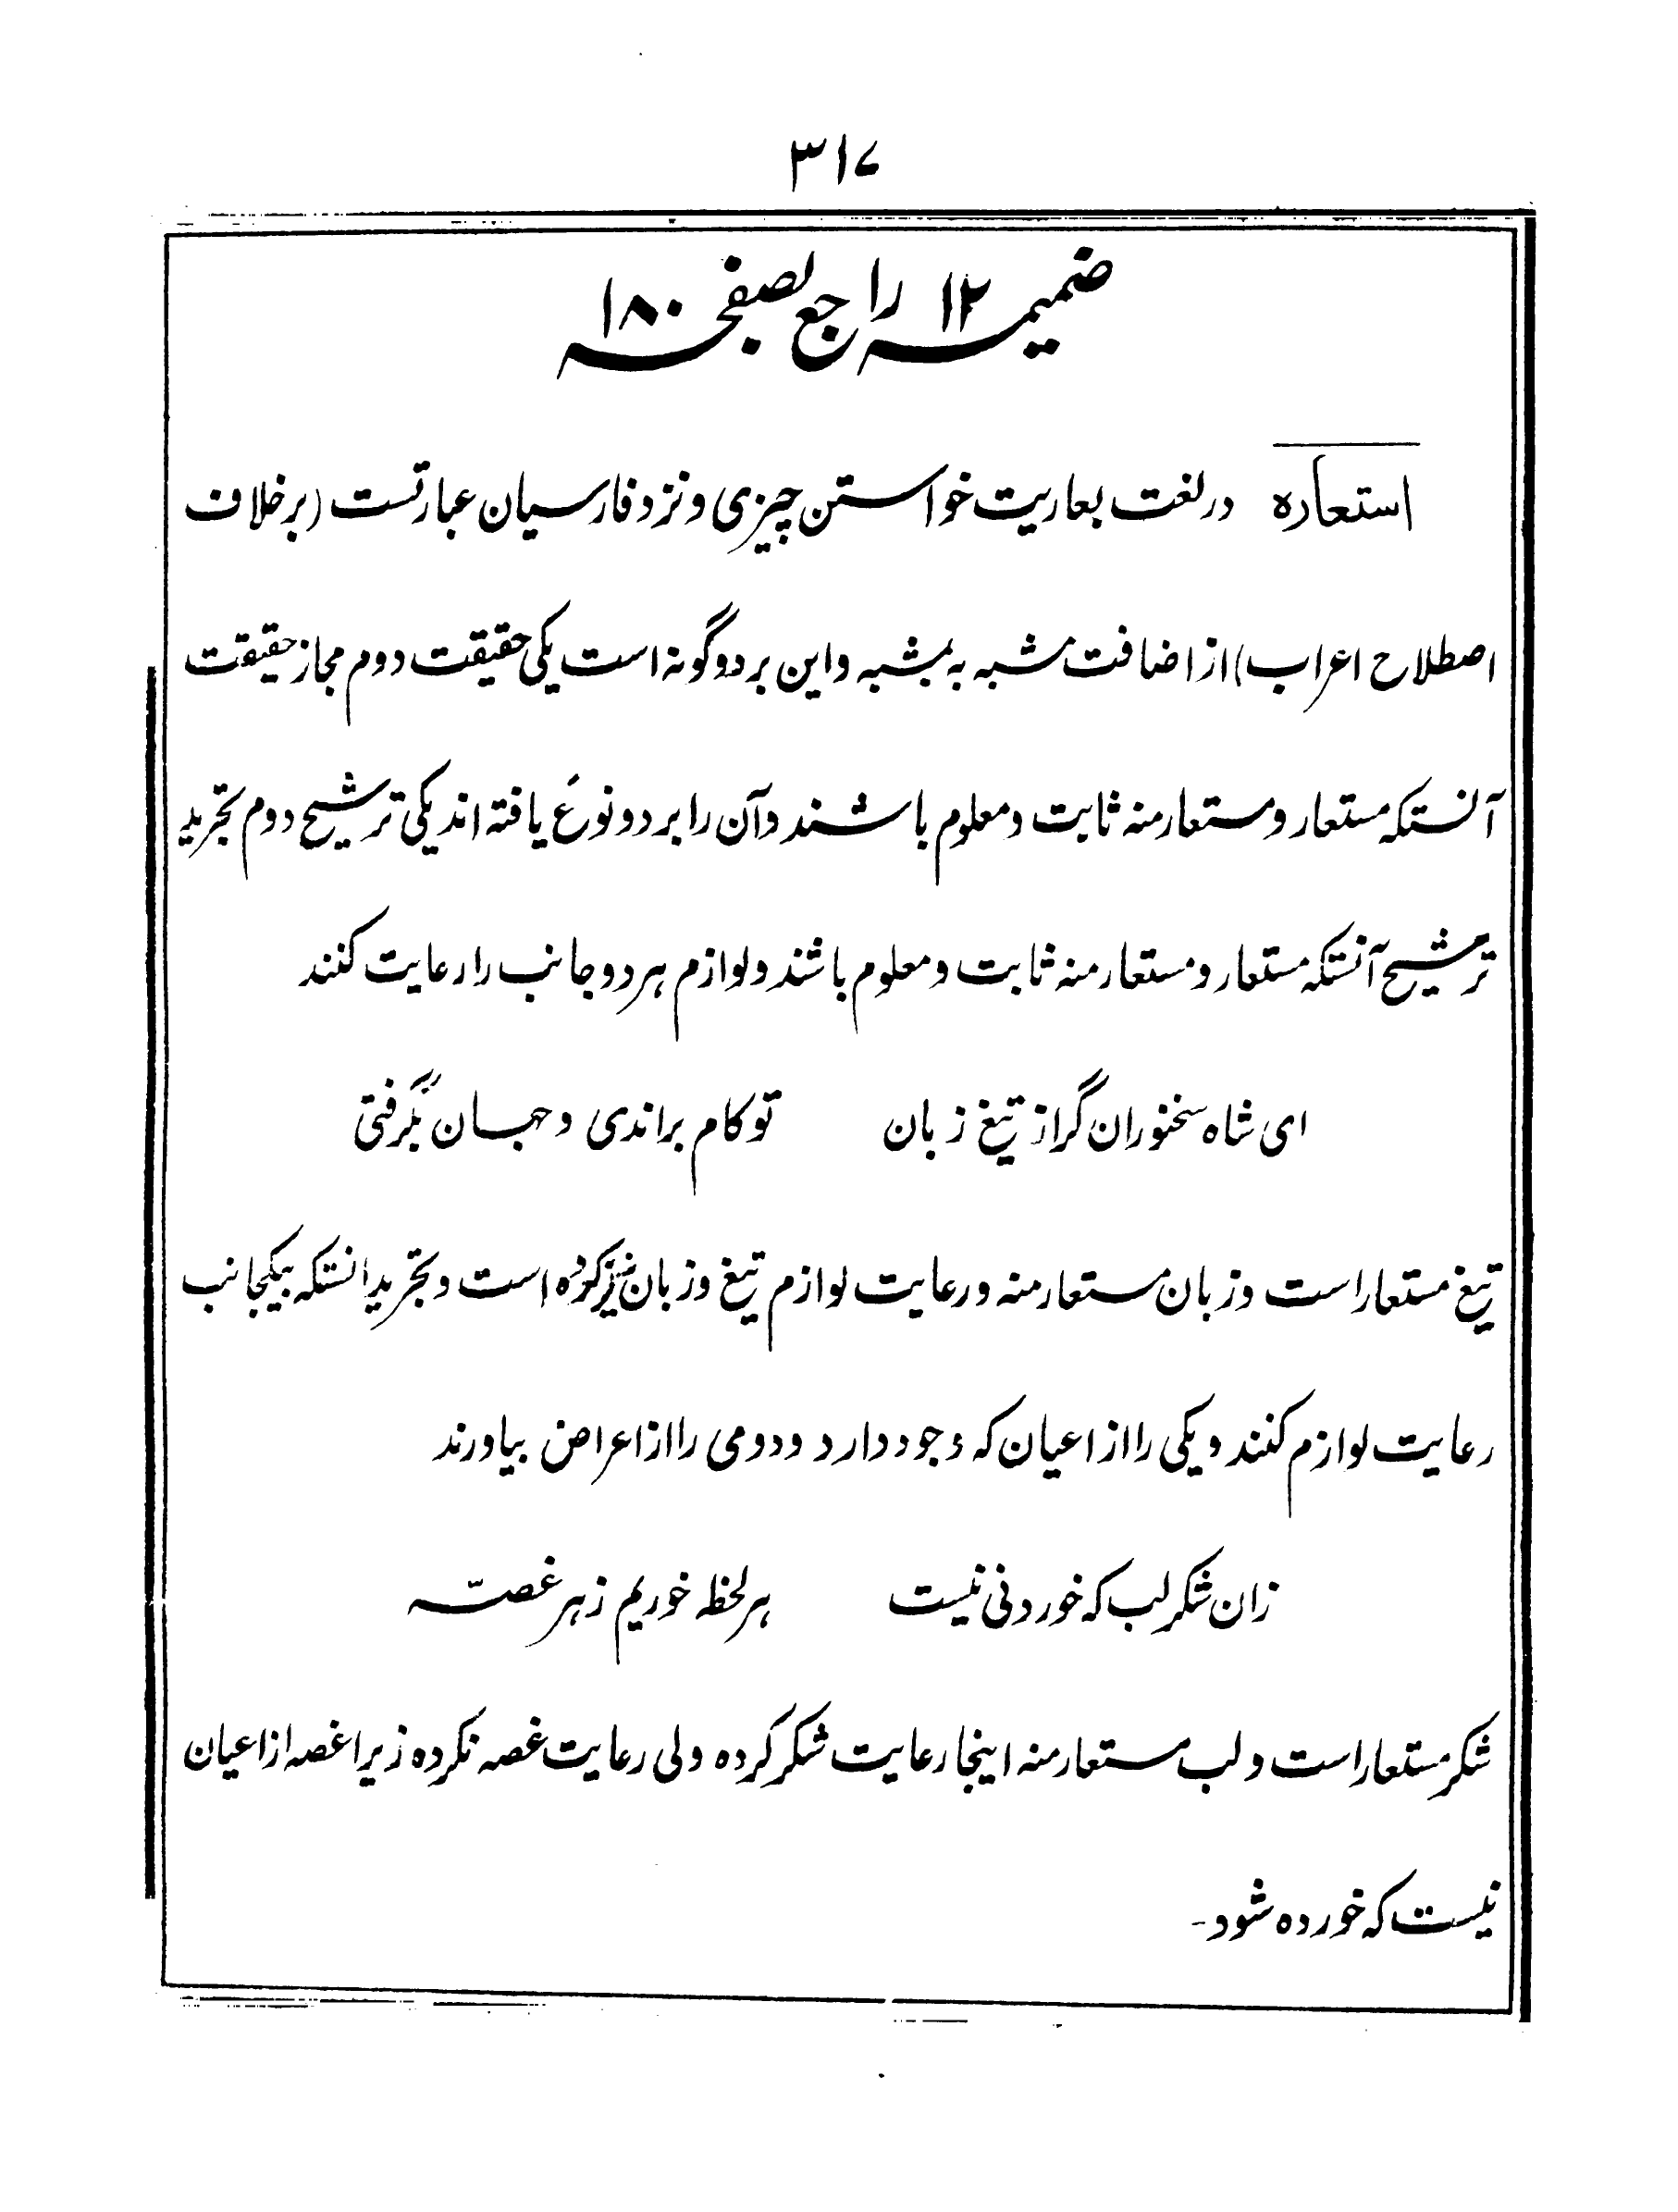 ۳۱۷
ضمیمه ۱۲ راجع بصفحه ۱۸۰
استعاره در لغت بعاریت خواستن چیزی و نزد فارسیان عبارتست (بر خلاف
اصطلاح اعراب) از اضافت مشبه به بمشبه و این بر دو گونه است یکی حقیقت دوم مجاز حقیقت
آنستکه مستعار و مستعارمنه ثابت و معلوم باشند و آن را بر دو نوع یافته اند یکی ترشیح دوم تجرید
ترشیح آنستکه مستعار و مستعارمنه ثابت و معلوم باشند و لوازم هر دو جانب را رعایت کنند
ای شاه سخنوران گر از تیغ زبان تو کام براندی و جهان بگرفتی
تیغ مستعار است و زبان مستعارمنه و رعایت لوازم تیغ و زبان نیز کرده است و تجرید انستکه بیکجانب
رعایت لوازم کنند و یکی را از اعیان که وجود دارد و دومی را از اعراض بیاورند
زان شکر لب که خوردنی نیست هر لحظه خوریم زهر غصّه
شکر مستعار است و لب مستعارمنه اینجا رعایت شکر کرده ولی رعایت غصه نکرده زیرا غصه از اعیان
نیست که خورده شود-